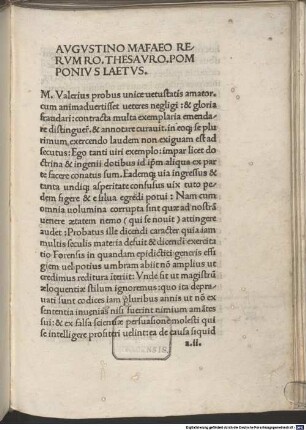 AVGVSTINO MAFAEO RE-
RVM RO. THESAVRO. POM
PONIVS LAETVS.
M. Valerius probus unice uetustatis amator.
cum animaduertisset ueteres negligi : & gloria
fraudari: contracta multa exemplaria emenda
re distinguer̃: & annotare curauit. in eoq; se plu
rimum, exercendo laudem non exiguam est ad
secutus: Ego tanti uiri exemplo: impar licet do
ctrina & ingenii dotibus id ip̃m aliqua ex par
te facere conatus sum. Eademq; uia ingressus &
tanta undiq; asperitate confusus uix tuto pe
dem figere & e silua egredi potui : Nam cum
omnia uolumina corrupta sint quæ ad nostrã
uenere ætatem nemo ( qui se nouit ) attingere
audet : Probatus ille dicendi caracter quia iam
multis seculis materia defuit & dicendi exercita
tio Forensis in quandam epidictici generis effi
giem uel potius umbram abiit nõ amplius ut
credimus reditura iterũt: Vnde sit ut magistrã
æloquentiæ stilum ignoremus: quo ita depra-
uati sunt codices iam p̃luribus annis ut nõ ex
sententia inuẽias nisi fuerint nimium amãtes
sui: & ex falsa scientiæ persuasione molesti qui
se intelligere profiteri uelint: ea de causa siquid
a.ii.